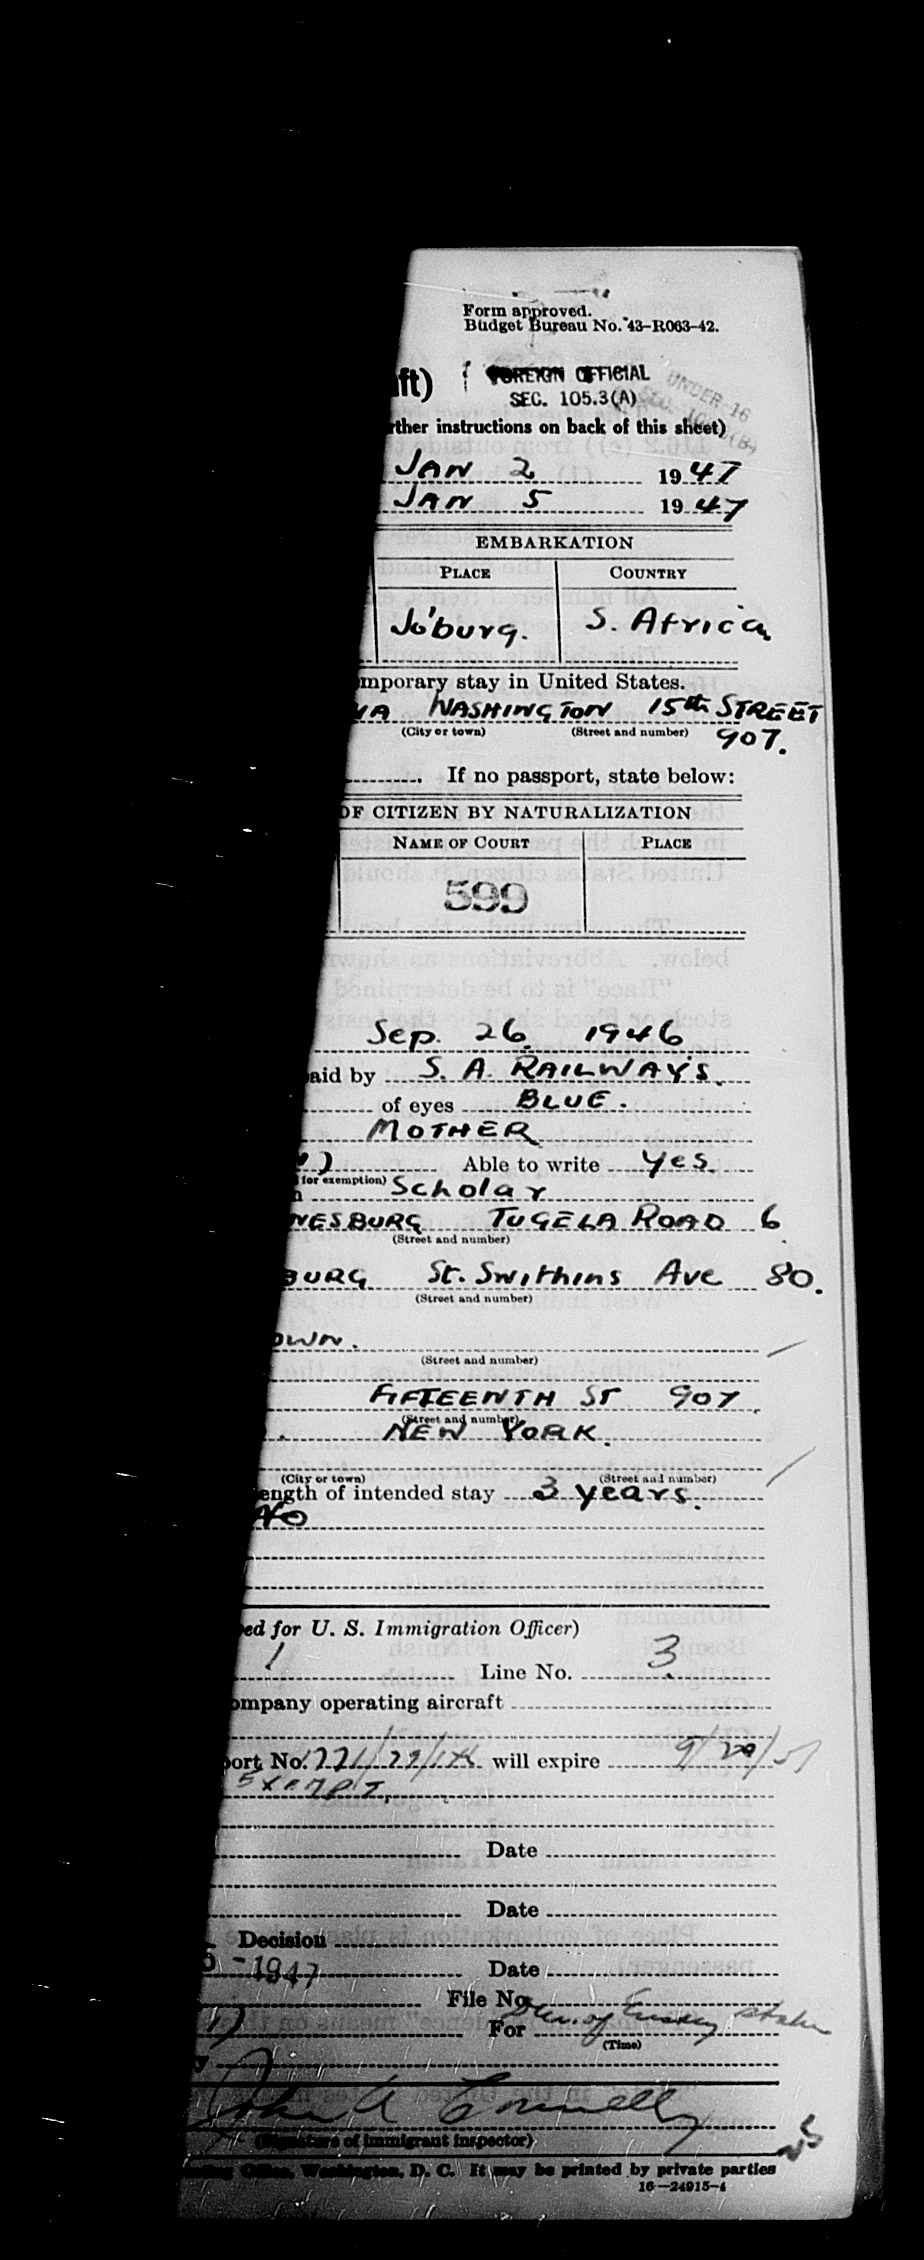 Form approved.
Budget Bureau No. 43-R063-42.
ft) FOREIGN OFFICIAL
SEC. 105.3(A)
UNDER 16
rther instructions on back of this sheet)
JAN 2 1947
JAN 5 1947
EMBARKATION
PLACE COUNTRY
Jo'burg. S. Africa
mporary stay in United States.
WASHINGTON 15th STREET
(City or town) (Street and number) 907.
If no passport, state below:
OF CITIZEN BY NATURALIZATION
NAME OF COURT PLACE
599
Sep. 26 1946
aid by S. A. RAILWAYS.
of eyes BLUE.
MOTHER
Able to write Yes.
for exemption)
Scholar
NESBURG TUGELA ROAD 6
(Street and number)
BURG St. Swithins Ave 80.
(Street and number)
OWN.
(Street and number)
FIFTEENTH ST 907
(Street and number)
NEW YORK.
(City or town) (Street and number)
ength of intended stay 3 years.
No
ed for U. S. Immigration Officer)
1 Line No. 3
ompany operating aircraft
port No. will expire
EXEMPT.
Date
Date
Decision
- 1947 Date
File No.
For
(Time)
John A Connelly
(Signature of immigrant inspector)
Office, Washington, D. C. It may be printed by private parties
16—24915-4